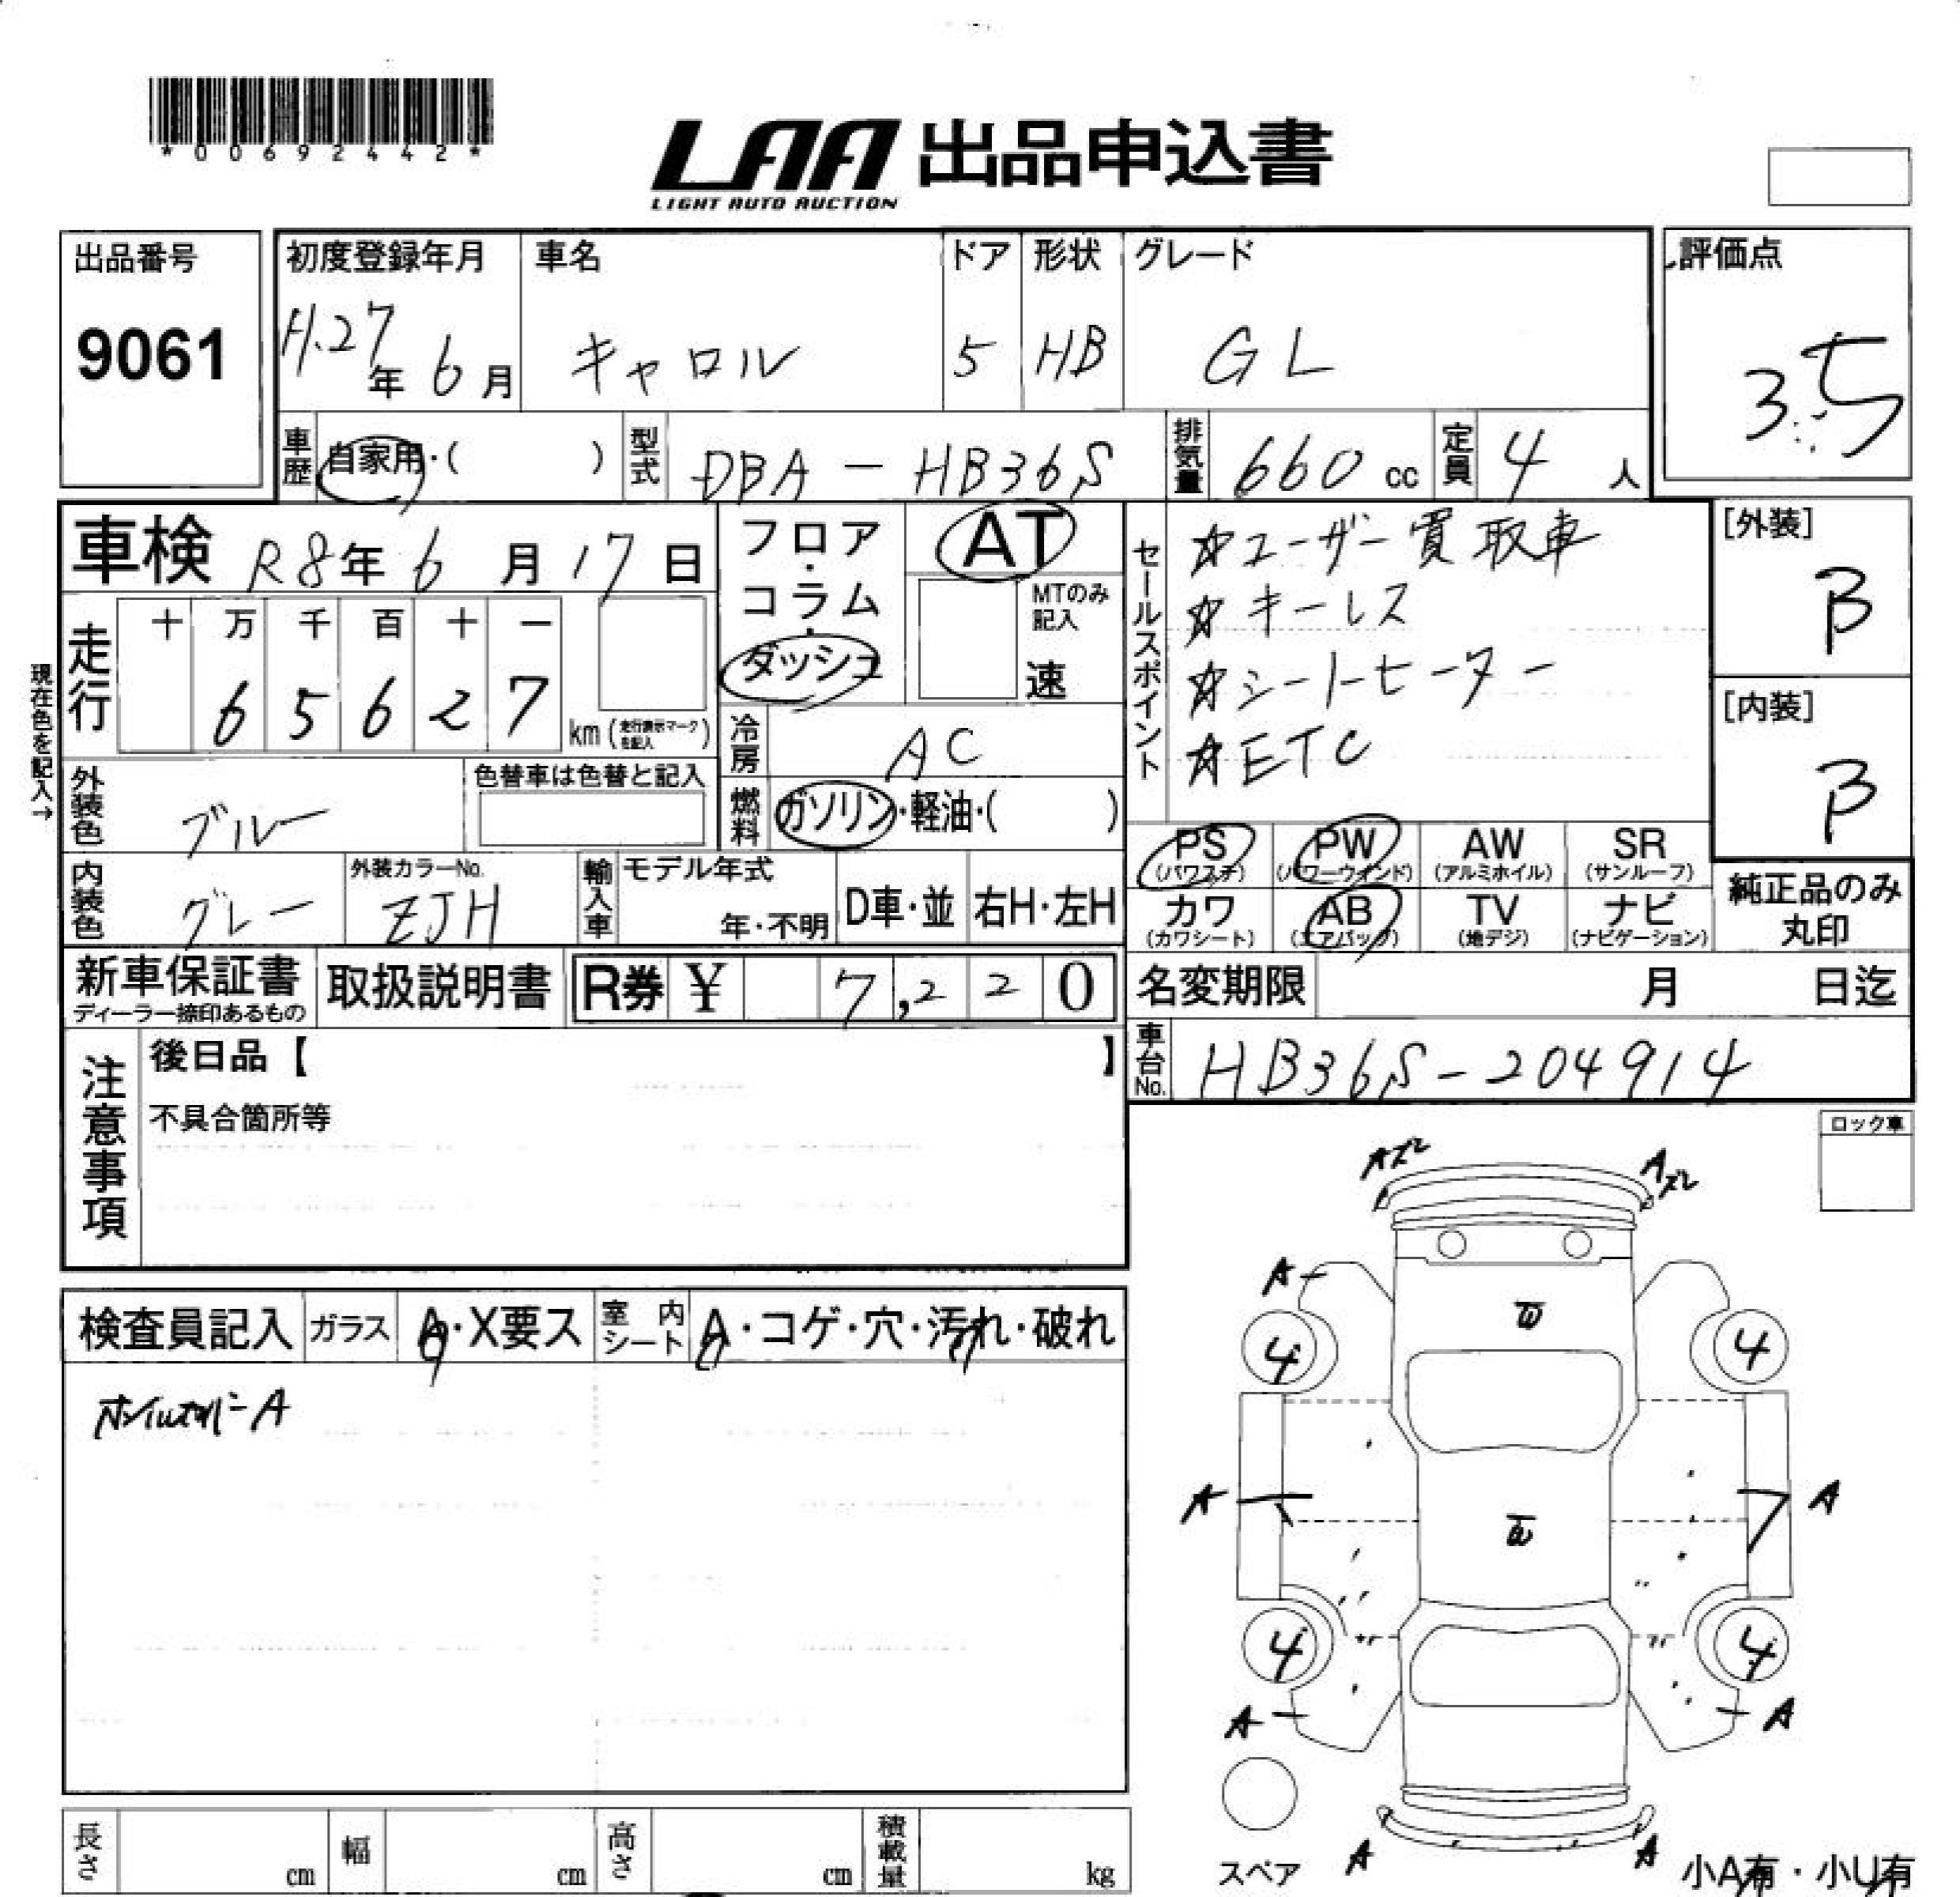 *00692442*
LAA 出品申込書
LIGHT AUTO AUCTION
出品番号
9061
初度登録年月
H.27年 6月
車名
キャロル
ドア
5
形状
HB
グレード
GL
評価点
3.5
車歴 自家用・( )
型式 DBA-HB36S
排気量 660 cc
定員 4 人
車検 R8年 6月 17日
フロア・コラム・ダッシュ
AT
MTのみ記入
速
セールスポイント
☆ユーザー買取車
☆キーレス
☆シートヒーター
☆ETC
[外装]
B
[内装]
B
現在色を記入→
走行
十 万 千 百 十 一
6 5 6 2 7
km (走行表示マークを記入)
冷房 AC
燃料 ガソリン・軽油・( )
外装色 ブルー
色替車は色替と記入
内装色 グレー
外装カラーNo.
ZJH
輸入車 モデル年式
年・不明
D車・並
右H・左H
PS (パワステ)
PW (パワーウインド)
AW (アルミホイル)
SR (サンルーフ)
カワ (カワシート)
AB (エアバッグ)
TV (地デジ)
ナビ (ナビゲーション)
純正品のみ丸印
新車保証書
ディーラー捺印あるもの
取扱説明書
R券 ¥ 7,220
名変期限 月 日迄
車台No. HB36S-204914
注意事項
後日品【 】
不具合箇所等
ロック車
検査員記入
ガラス A・X要ス
室内シート A・コゲ・穴・汚れ・破れ
Aズレ
Aズレ
A
4
4
A
A
4
4
A
A
A
A
スペア
小A有・小U有
長さ cm
幅 cm
高さ cm
積載量 kg